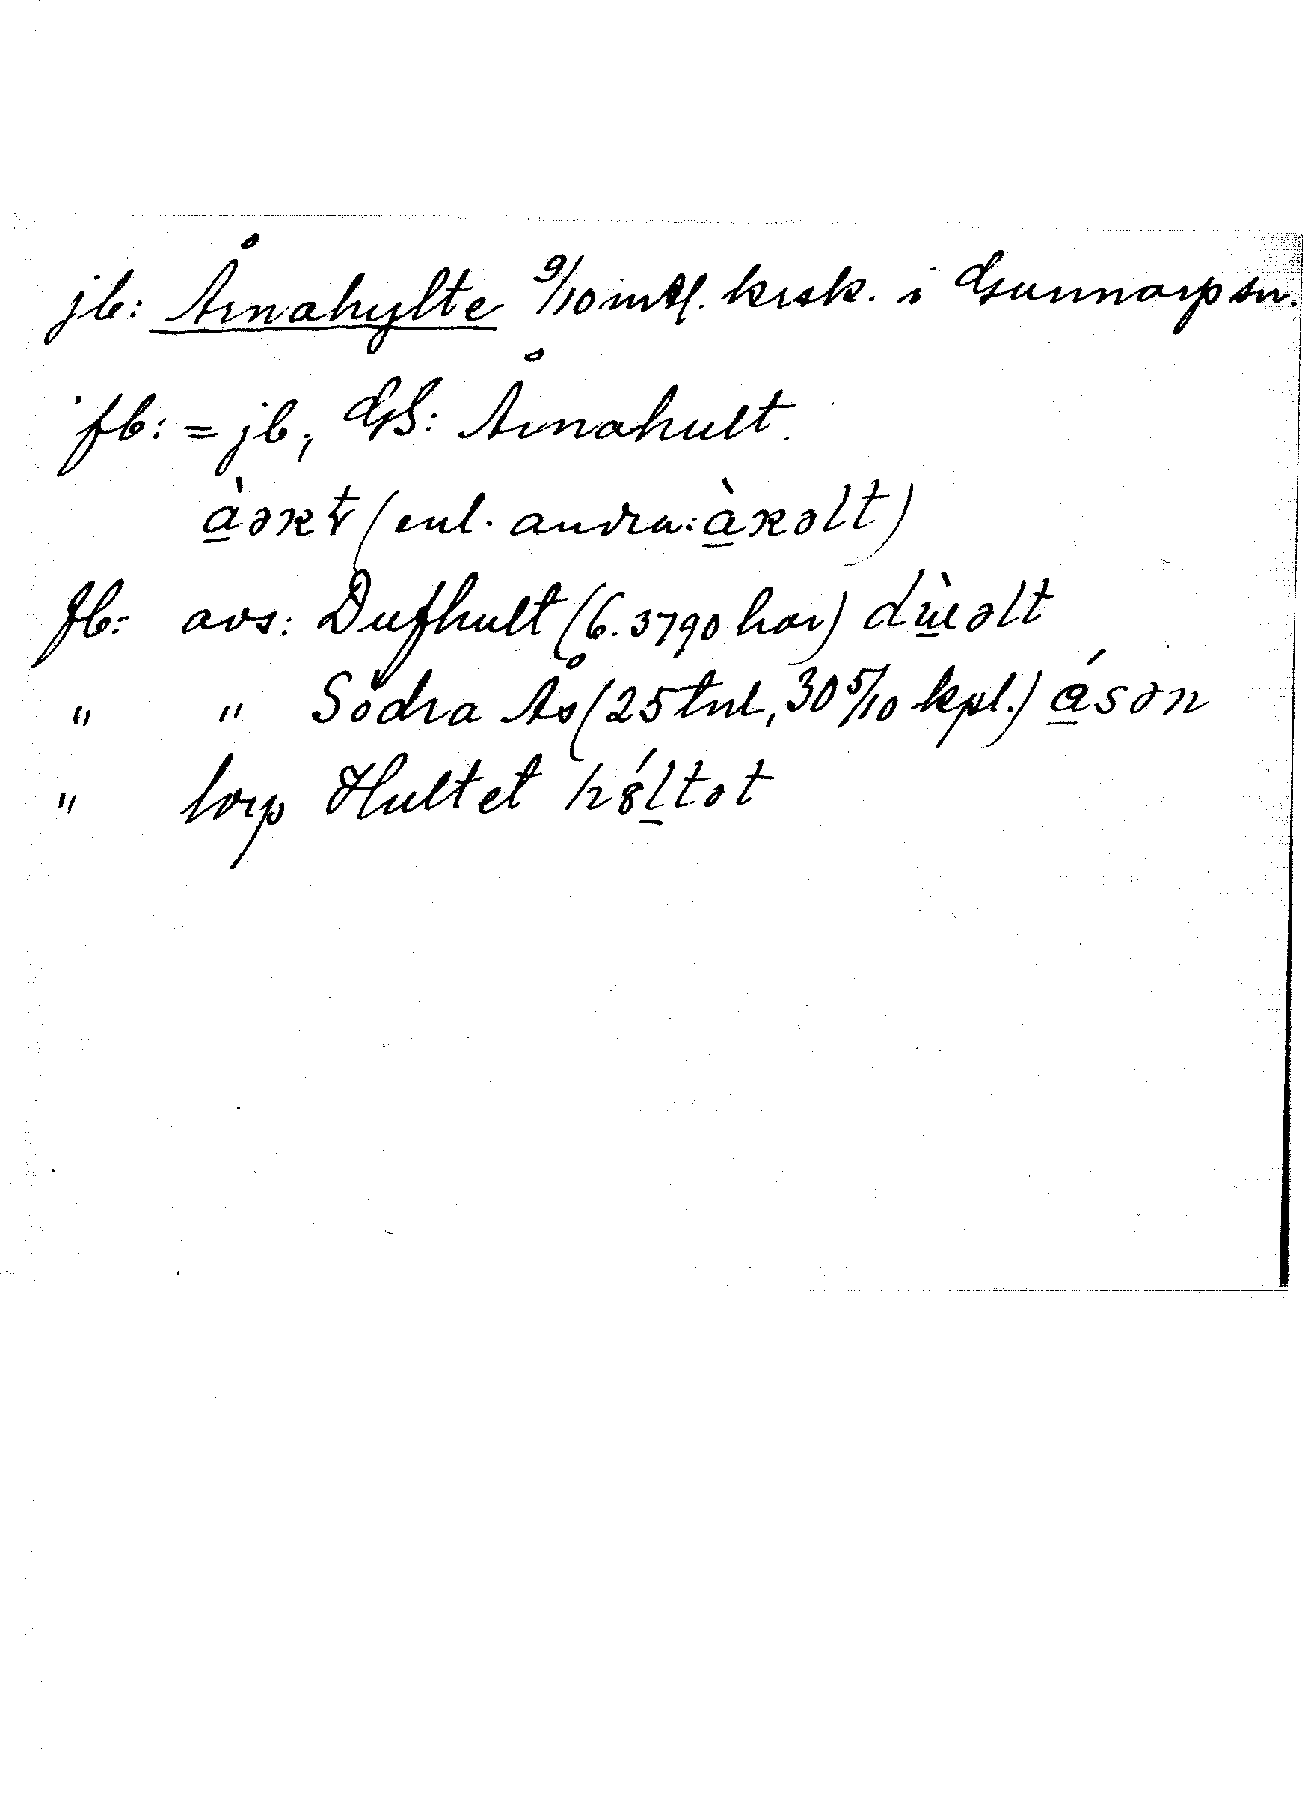 jb: Årnahylte 9/10 mtl. krsk. i Gunnarp sn.
fb: = jb, GS: Årnahult.
(enl. andra: àxəlt)
fb: avs: Dufhult (6.3790 har) dùəlt
" " Södra Ås (25 tnl, 30 5/10 kpl.) ásən
" torp Hultet h8́ltət